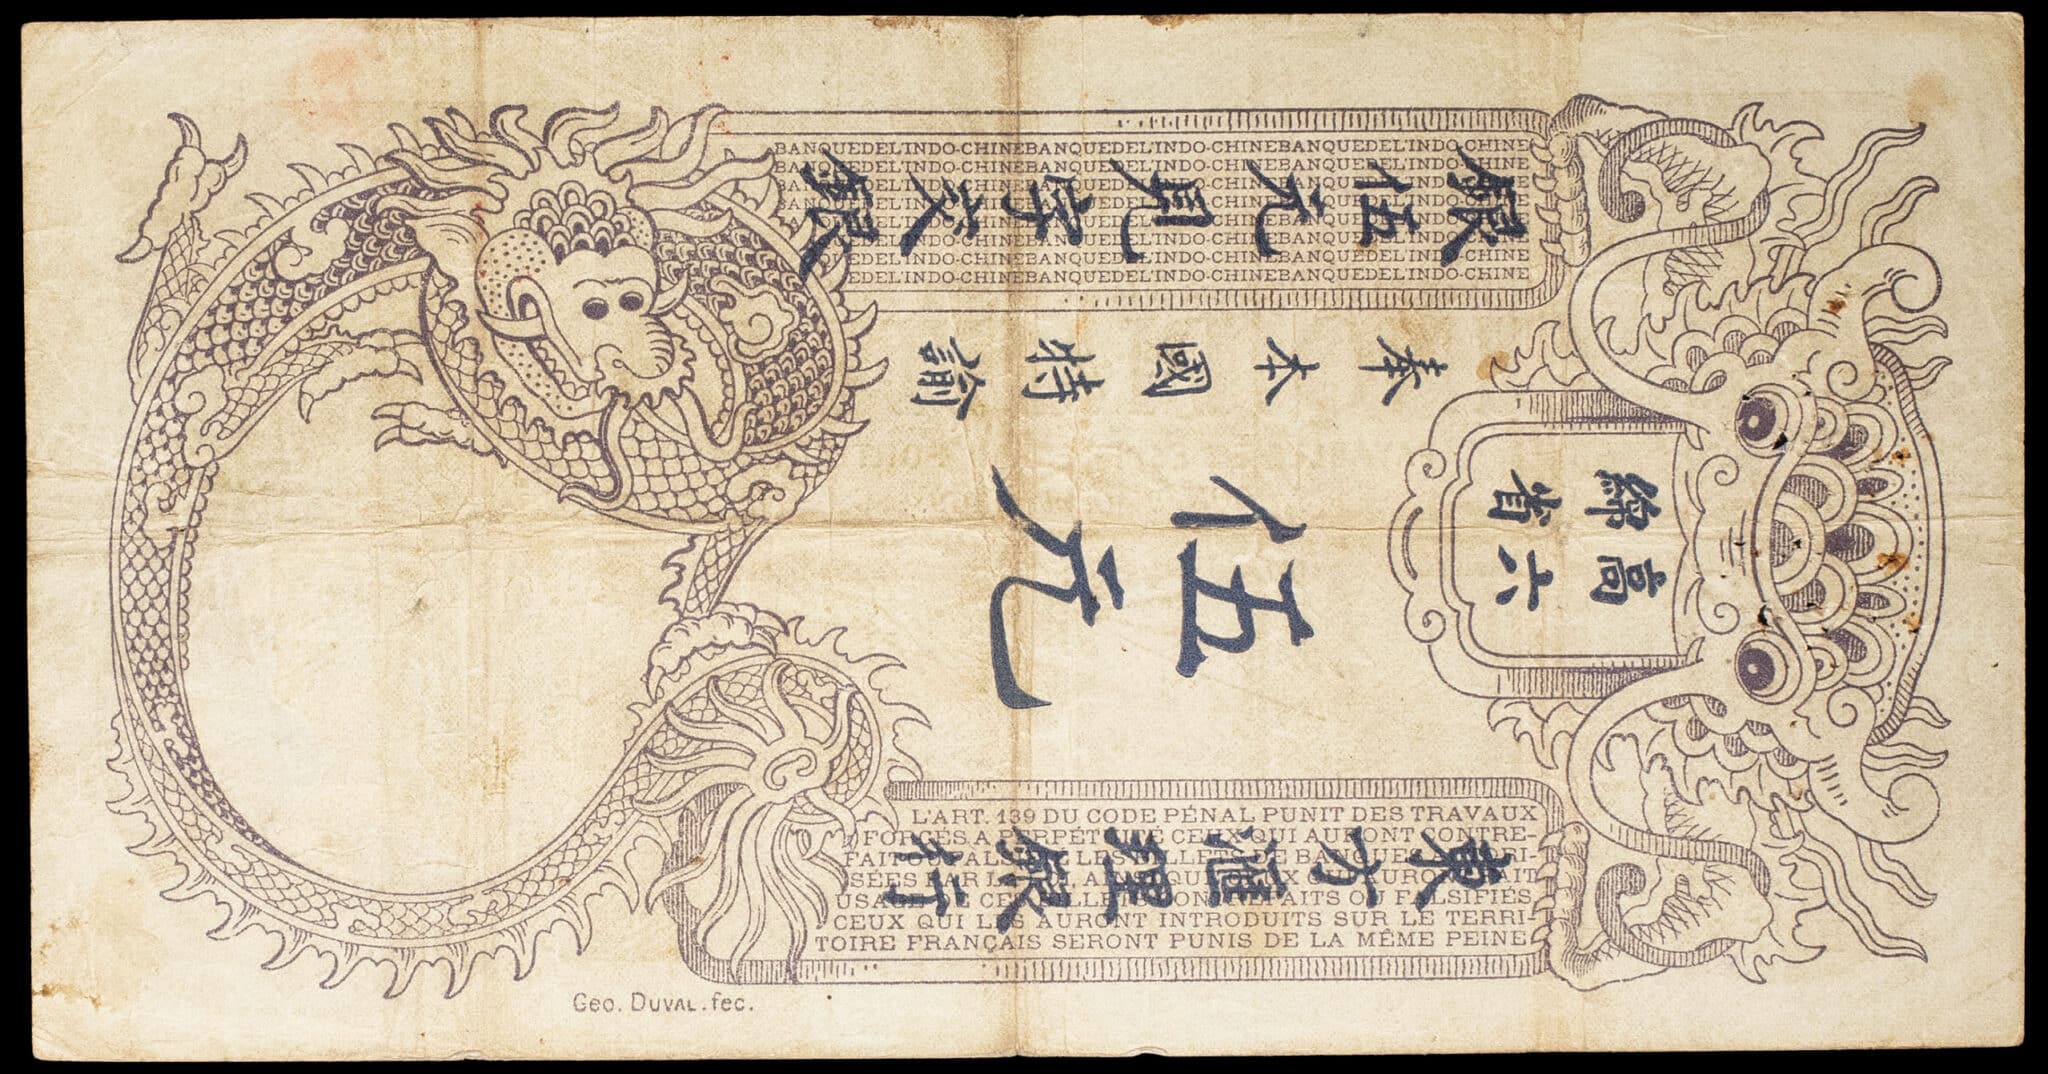 BANQUEDEL'INDO-CHINEBANQUEDEL'INDO-CHINEBANQUEDEL'INDO-CHINE
BANQUEDEL'INDO-CHINEBANQUEDEL'INDO-CHINEBANQUEDEL'INDO-CHINE
BANQUEDEL'INDO-CHINEBANQUEDEL'INDO-CHINEBANQUEDEL'INDO-CHINE
BANQUEDEL'INDO-CHINEBANQUEDEL'INDO-CHINEBANQUEDEL'INDO-CHINE
BANQUEDEL'INDO-CHINEBANQUEDEL'INDO-CHINEBANQUEDEL'INDO-CHINE
BANQUEDEL'INDO-CHINEBANQUEDEL'INDO-CHINEBANQUEDEL'INDO-CHINE
QUEDEL'INDO-CHINEBANQUEDEL'INDO-CHINEBANQUEDEL'INDO-CHINE
QUEDEL'INDO-CHINEBANQUEDEL'INDO-CHINEBANQUEDEL'INDO-CHINE
高綿
六省
東方滙理銀行
伍元
奉本國特諭
銀伍元見字交銀
L'ART. 139 DU CODE PÉNAL PUNIT DES TRAVAUX
FORCÉS A PERPÉTUITÉ CEUX QUI AURONT CONTRE-
FAIT OU FALSIFIÉ LES BILLETS DE BANQUE AUTORI-
SÉES PAR LA LOI, AINSI QUE CEUX QUI AURONT FAIT
USAGE DE CES BILLETS CONTREFAITS OU FALSIFIÉS.
CEUX QUI LES AURONT INTRODUITS SUR LE TERRI-
TOIRE FRANÇAIS SERONT PUNIS DE LA MÊME PEINE
Geo. DUVAL.fec.